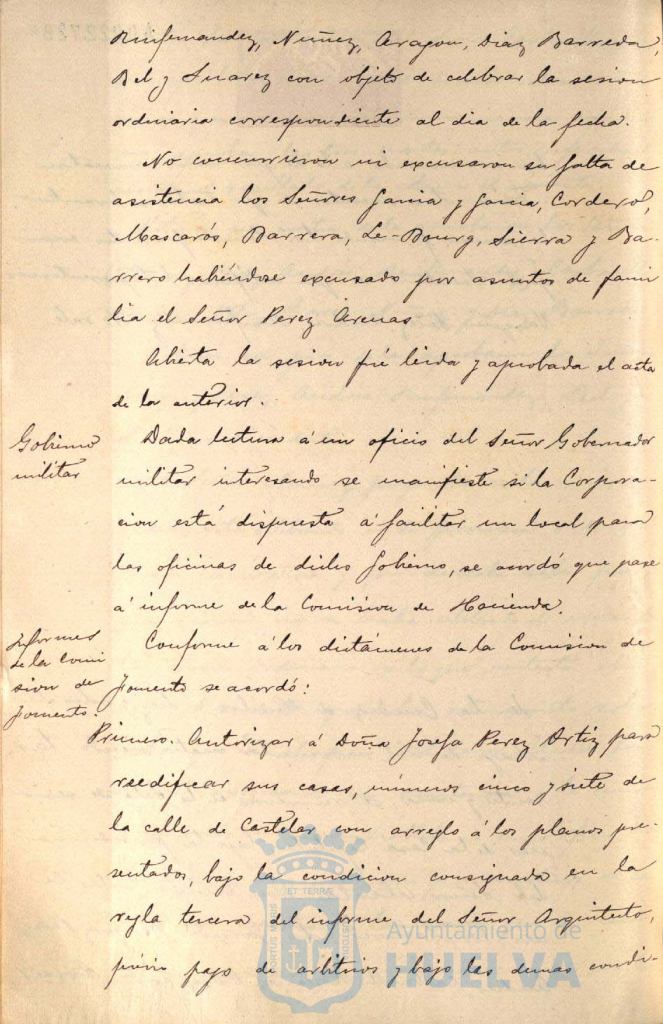 Ruifernandez, Nuñez, Aragon, Diaz Barreda,
Bel y Suarez con objeto de celebrar la sesion
ordinaria correspondiente al dia de la fecha.
No concurrieron ni excusaron su falta de
asistencia los Señores Garcia y Garcia, Cordero,
Mascarós, Barrera, Le-Bourg, Sierra y Ba-
rrero habiéndose excusado por asuntos de fami
lia el Señor Perez Arenas
Abierta la sesion fué leida y aprobada el acta
de la anterior.
Gobierno
militar
Dada lectura á un oficio del Señor Gobernador
militar interesando se manifieste si la Corpora-
cion está dispuesta á facilitar un local para
las oficinas de dicho Gobierno, se acordó que pase
á informe de la Comision de Hacienda.
Informes
de la Comi
sion de
Fomento.
Conforme á los dictámenes de la Comision de
Fomento se acordó:
Primero. Autorizar á Doña Josefa Perez Ortiz para
reedificar sus casas, números cinco y siete de
la calle de Castelar con arreglo á los planos pre-
sentados, bajo la condicion consignada en la
regla tercera del informe del Señor Arquitecto,
prévio pago de arbitrios y bajo las demas condi-
ET TERRÆ
PORTUS MARIS
CUSTODIA
Ayuntamiento de
HUELVA